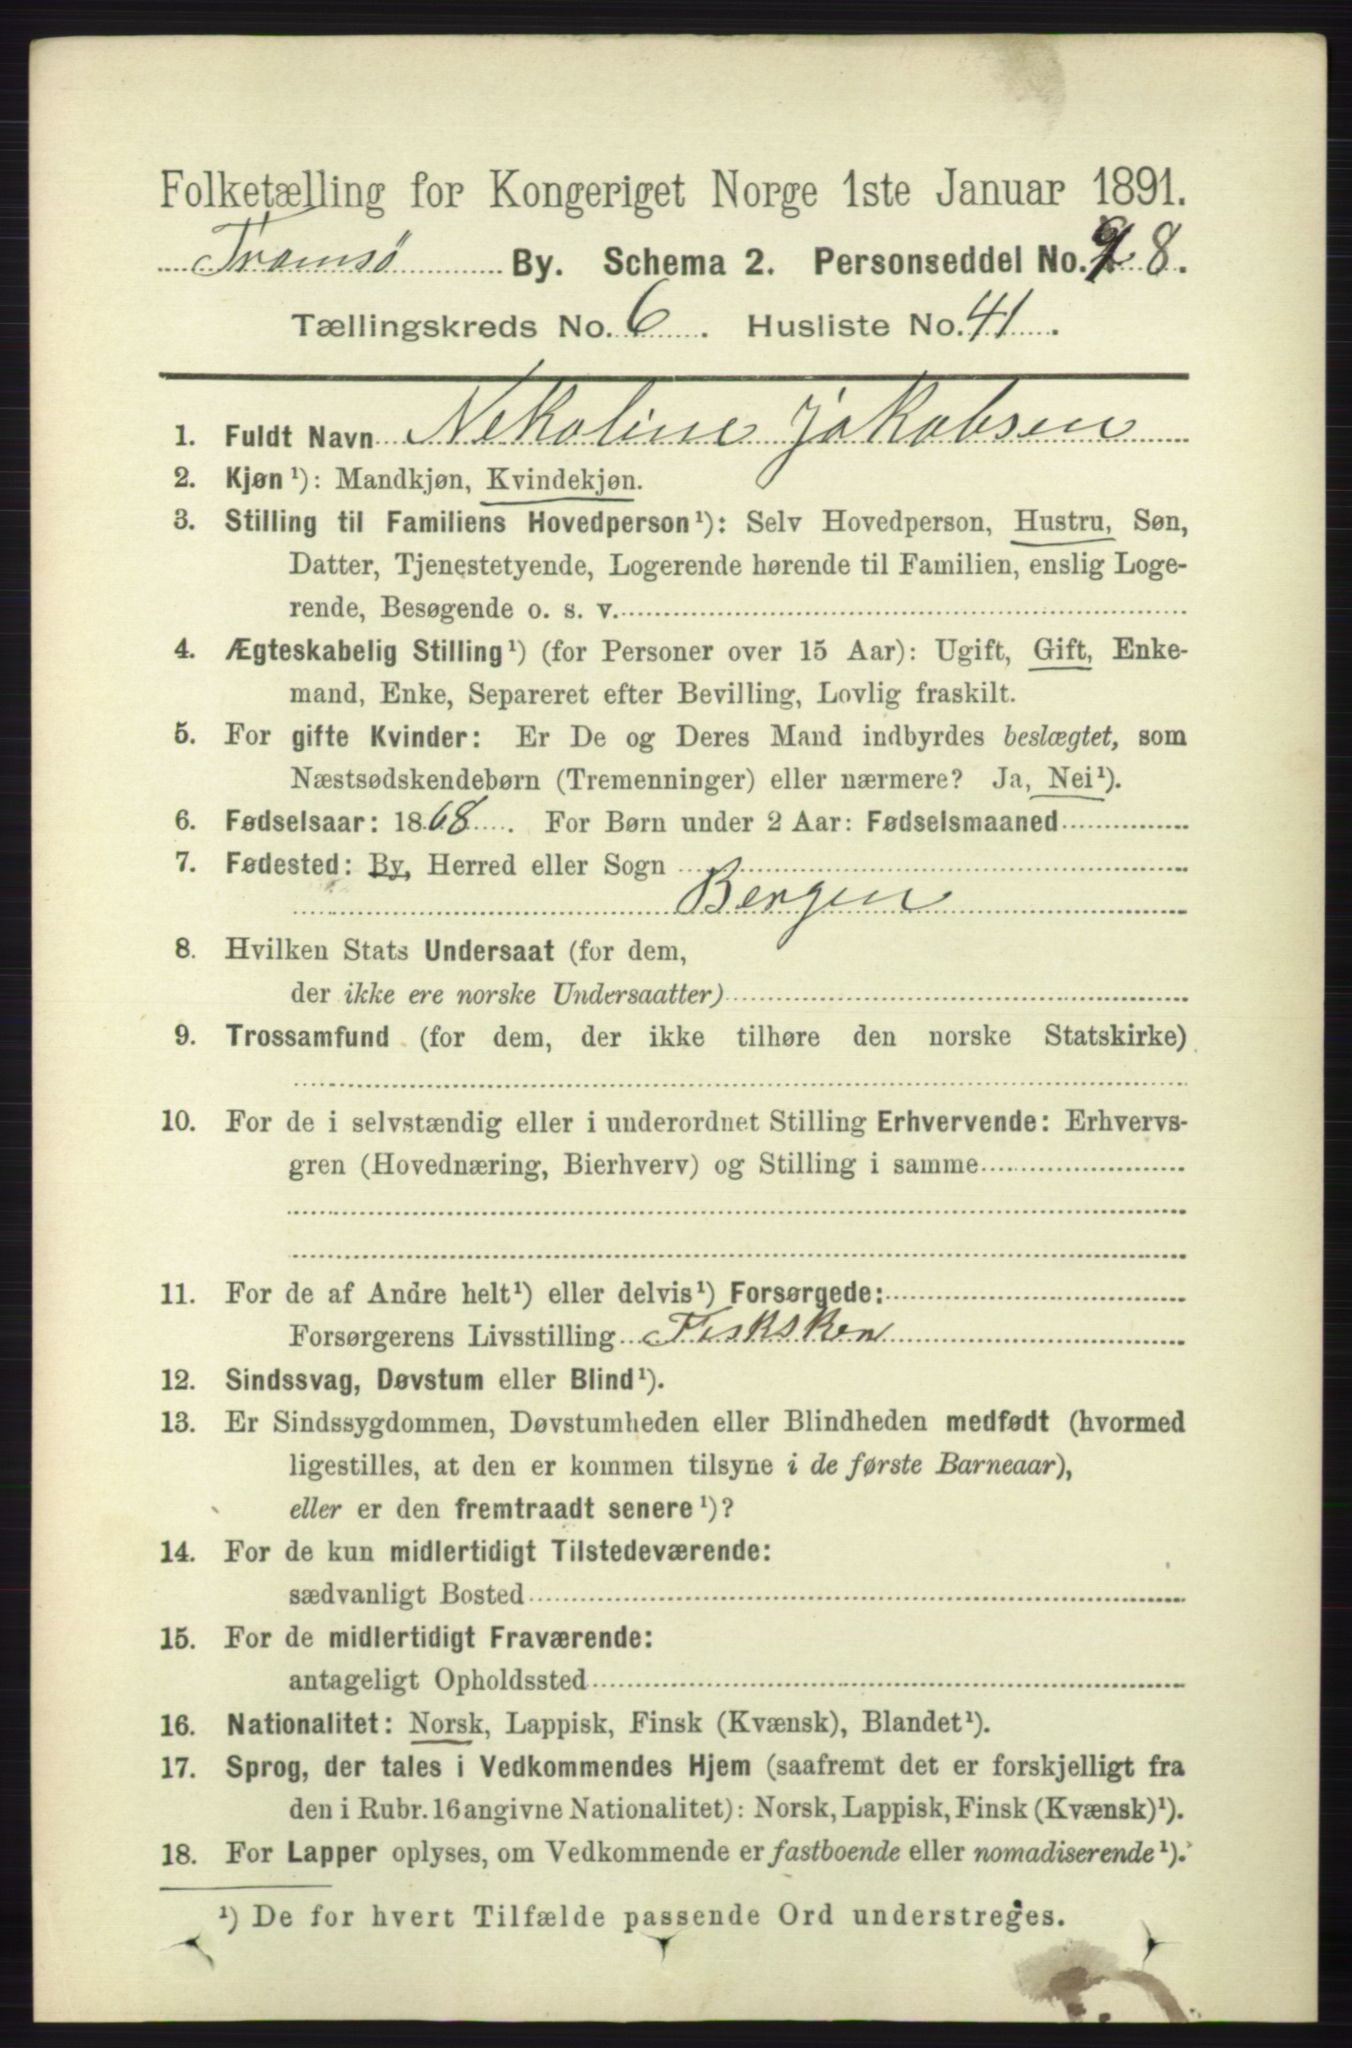 Folketælling for Kongeriget Norge 1ste Januar 1891.
Tromsø By. Schema 2. Personseddel No. 8.
Tællingskreds No. 6. Husliste No. 41.
1. Fuldt Navn Nekoline Jakobsen
2. Kjøn¹): Mandkjøn, Kvindekjøn.
3. Stilling til Familiens Hovedperson¹): Selv Hovedperson, Hustru, Søn,
Datter, Tjenestetyende, Logerende hørende til Familien, enslig Loge-
rende, Besøgende o. s. v.
4. Ægteskabelig Stilling¹) (for Personer over 15 Aar): Ugift, Gift, Enke-
mand, Enke, Separeret efter Bevilling, Lovlig fraskilt.
5. For gifte Kvinder: Er De og Deres Mand indbyrdes beslægtet, som
Næstsødskendebørn (Tremenninger) eller nærmere? Ja, Nei¹).
6. Fødselsaar: 1868. For Børn under 2 Aar: Fødselsmaaned
7. Fødested: By, Herred eller Sogn
Bergen
8. Hvilken Stats Undersaat (for dem,
der ikke ere norske Undersaatter)
9. Trossamfund (for dem, der ikke tilhøre den norske Statskirke)
10. For de i selvstændig eller i underordnet Stilling Erhvervende: Erhvervs-
gren (Hovednæring, Bierhverv) og Stilling i samme
11. For de af Andre helt¹) eller delvis¹) Forsørgede:
Forsørgerens Livsstilling
12. Sindssvag, Døvstum eller Blind¹).
13. Er Sindssygdommen, Døvstumheden eller Blindheden medfødt (hvormed
ligestilles, at den er kommen tilsyne i de første Barneaar),
eller er den fremtraadt senere¹)?
14. For de kun midlertidigt Tilstedeværende:
sædvanligt Bosted
15. For de midlertidigt Fraværende:
antageligt Opholdssted
16. Nationalitet: Norsk, Lappisk, Finsk (Kvænsk), Blandet¹).
17. Sprog, der tales i Vedkommendes Hjem (saafremt det er forskjelligt fra
den i Rubr. 16 angivne Nationalitet): Norsk, Lappisk, Finsk (Kvænsk)¹).
18. For Lapper oplyses, om Vedkommende er fastboende eller nomadiserende¹).
¹) De for hvert Tilfælde passende Ord understreges.